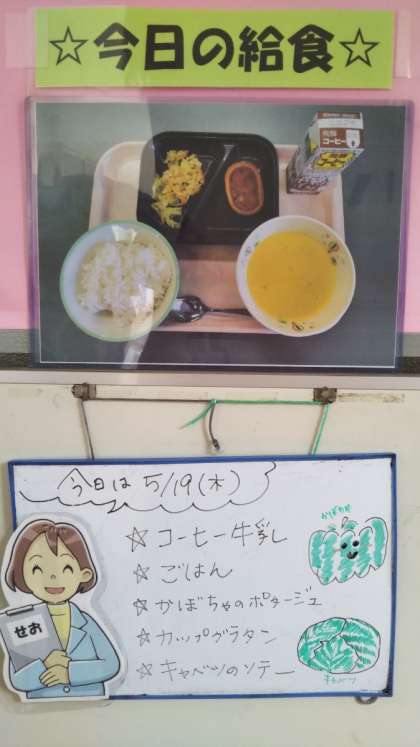 ☆今日の給食☆
飛騨
コーヒー
今日は 5/19(木)
☆ コーヒー牛乳
☆ ごはん
☆ かぼちゃのポタージュ
☆ カップグラタン
☆ キャベツのソテー
かぼちゃ
キャベツ
せお